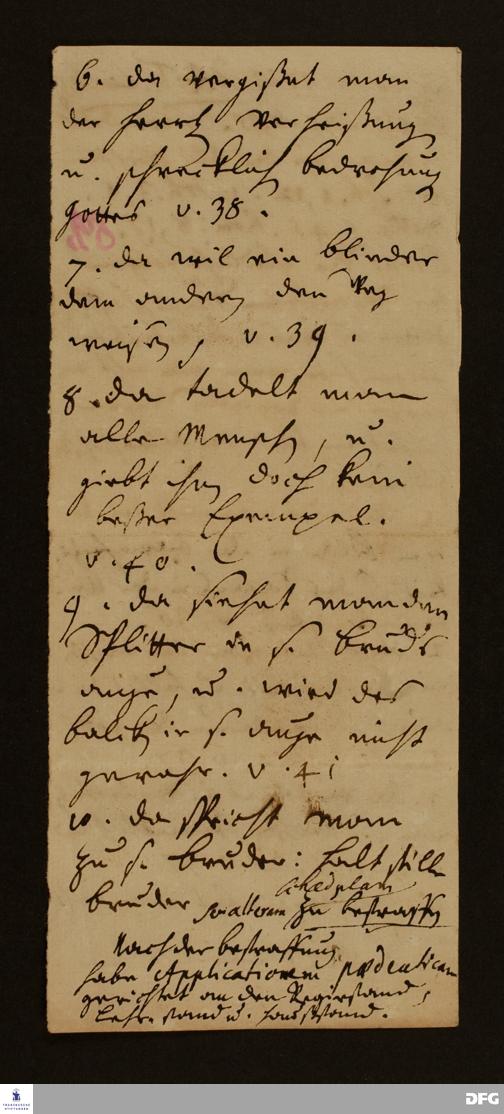 6. da vergißet man
der herrl. Verheißung
u. schrecklich bedrohung
gottes v. 38.
7. da wil ein blinder
dem andern den Weg
weisen, v. 39.
8. da tadelt man
alle Mensch, u.
giebt ihn doch kein
beßer Exempel.
v. 40.
9. da siehet man den
Splitter in s. brud's
auge, u. wird des
balck in s. auge nicht
gewahr. v. 41
10. da spricht man
zu s. bruder: halt still
bruder zu bestraffen
Nach der bestraffung
habe Applicationem
gerichtet an den Regierstand,
Lehrstand u. hausstand.
FRANCKESCHE STIFTUNGEN
DFG